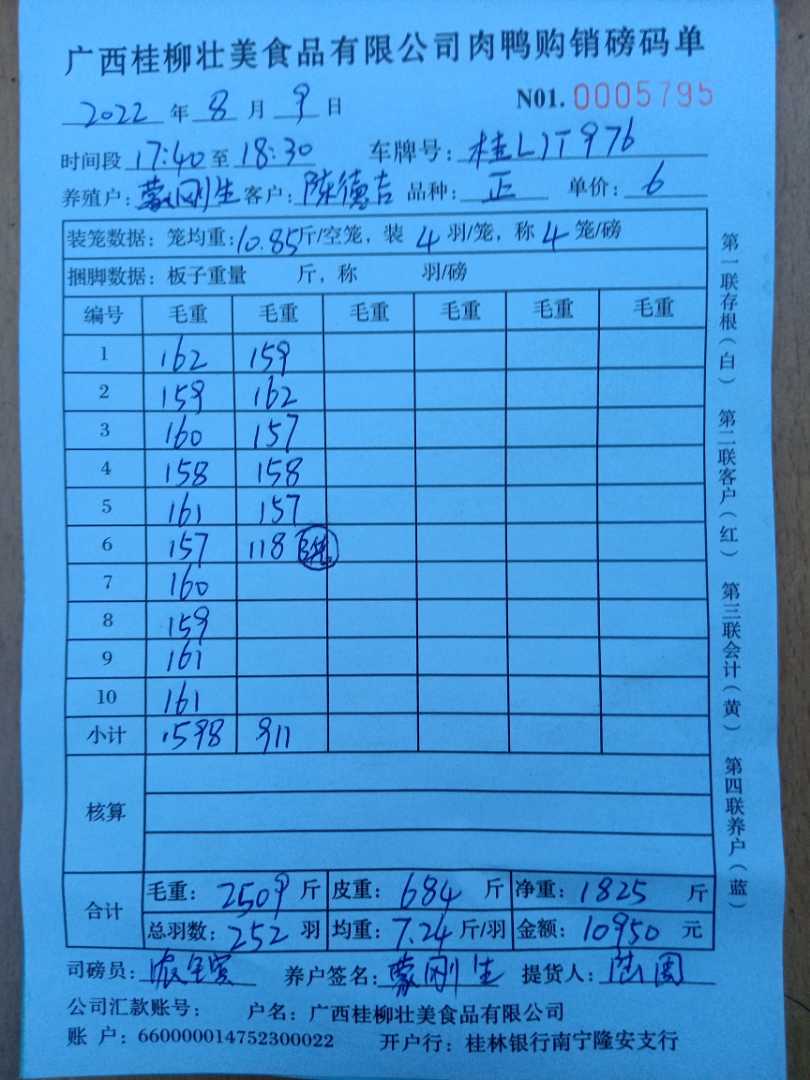 广西桂柳壮美食品有限公司肉鸭购销磅码单
2022 年 8 月 9 日 N01. 0005795
时间段 17:40 至 18:30 车牌号: 桂LJT976
养殖户: 蒙刚生 客户: 陈德吉 品种: 正 单价: 6
装笼数据: 笼均重: 10.85 斤/空笼, 装 4 羽/笼, 称 4 笼/磅
捆脚数据: 板子重量 斤, 称 羽/磅
编号 毛重 毛重 毛重 毛重 毛重 毛重
1 162 159
2 159 162
3 160 157
4 158 158
5 161 157
6 157 118
7 160
8 159
9 161
10 161
小计 1598 911
核算
合计 毛重: 2509 斤 皮重: 684 斤 净重: 1825 斤
总羽数: 252 羽 均重: 7.24 斤/羽 金额: 10950 元
司磅员: 养户签名: 蒙刚生 提货人:
公司汇款账号: 户名: 广西桂柳壮美食品有限公司
账 户: 660000014752300022 开户行: 桂林银行南宁隆安支行
第一联存根(白) 第二联客户(红) 第三联会计(黄) 第四联养户(蓝)